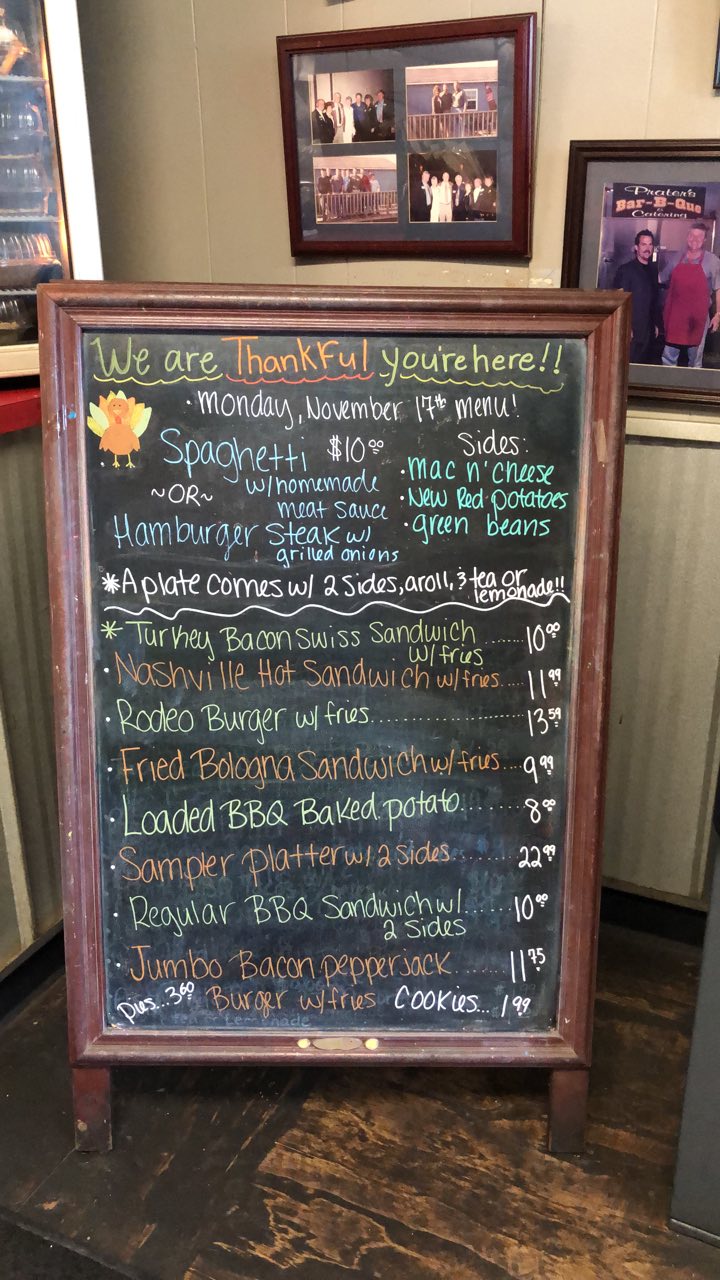 Prater's
Bar-B-Que
&
Catering
We are Thankful you're here!!
• Monday, November 17th menu!
Spaghetti $10.00
w/homemade
meat sauce
~OR~
Hamburger Steak w/
grilled onions
Sides:
• Mac n' cheese
• New Red potatoes
• green beans
*A plate comes w/ 2 sides, a roll, & tea or
lemonade!!
* Turkey Bacon Swiss Sandwich ....... 10.00
w/ fries
• Nashville Hot Sandwich w/ fries.... 11.99
• Rodeo Burger w/ fries........................ 13.59
• Fried Bologna Sandwich w/ fries.... 9.99
• Loaded BBQ Baked potato....... 8.00
• Sampler platter w/ 2 sides.......... 22.99
• Regular BBQ Sandwich w/...... 10.00
2 sides
• Jumbo Bacon pepperjack....... 11.75
Burger w/ fries
Pies...3.60
Cookies... 1.99
Lemonade